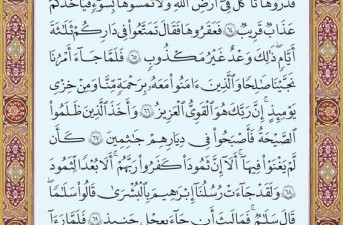 فَذَرُوهَا تَأْكُلْ فِىٓ أَرْضِ ٱللَّهِ وَلَا تَمَسُّوهَا بِسُوٓءٍ فَيَأْخُذَكُمْ
عَذَابٌ قَرِيبٌ ٦٤ فَعَقَرُوهَا فَقَالَ تَمَتَّعُوا۟ فِى دَارِكُمْ ثَلَٰثَةَ
أَيَّامٍ ذَٰلِكَ وَعْدٌ غَيْرُ مَكْذُوبٍ ٦٥ فَلَمَّا جَآءَ أَمْرُنَا
نَجَّيْنَا صَٰلِحًا وَٱلَّذِينَ ءَامَنُوا۟ مَعَهُۥ بِرَحْمَةٍ مِّنَّا وَمِنْ خِزْىِ
يَوْمِئِذٍ إِنَّ رَبَّكَ هُوَ ٱلْقَوِىُّ ٱلْعَزِيزُ ٦٦ وَأَخَذَ ٱلَّذِينَ ظَلَمُوا۟
ٱلصَّيْحَةُ فَأَصْبَحُوا۟ فِى دِيَٰرِهِمْ جَٰثِمِينَ ٦٧ كَأَن
لَّمْ يَغْنَوْا۟ فِيهَآ أَلَآ إِنَّ ثَمُودَا۟ كَفَرُوا۟ رَبَّهُمْ أَلَا بُعْدًا لِّثَمُودَ
٦٨ وَلَقَدْ جَآءَتْ رُسُلُنَآ إِبْرَٰهِيمَ بِٱلْبُشْرَىٰ قَالُوا۟ سَلَٰمًا
قَالَ سَلَٰمٌ فَمَا لَبِثَ أَن جَآءَ بِعِجْلٍ حَنِيذٍ ٦٩ فَلَمَّا رَءَآ